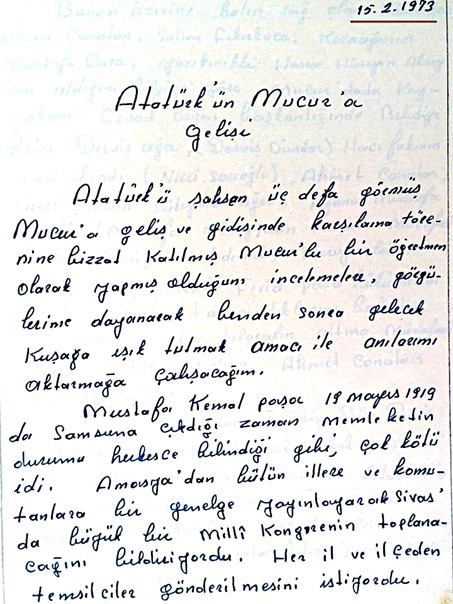 15.2.1973
Atatürk'ün Mucur'a
Gelişi
Atatürk'ü şahsen üç defa görmüş
Mucur'a geliş ve gidişinde karşılama töre-
nine bizzat katılmış Mucur'lu bir öğretmen
olarak yapmış olduğum incelemelere, görgü-
lerime dayanarak benden sonra gelecek
kuşağa ışık tutmak amacı ile anılarımı
aktarmağa çalışacağım.
Mustafa Kemal paşa 19 mayıs 1919
da Samsuna çıktığı zaman memleketin
durumu herkesce bilindiği gibi, çok kötü
idi. Amasya'dan bütün illere ve komu-
tanlara bir genelge yayınlayarak Sivas'
da büyük bir Millî Kongrenin toplana-
cağını bildiriyordu. Her il ve ilçeden
temsilciler gönderilmesini istiyordu.